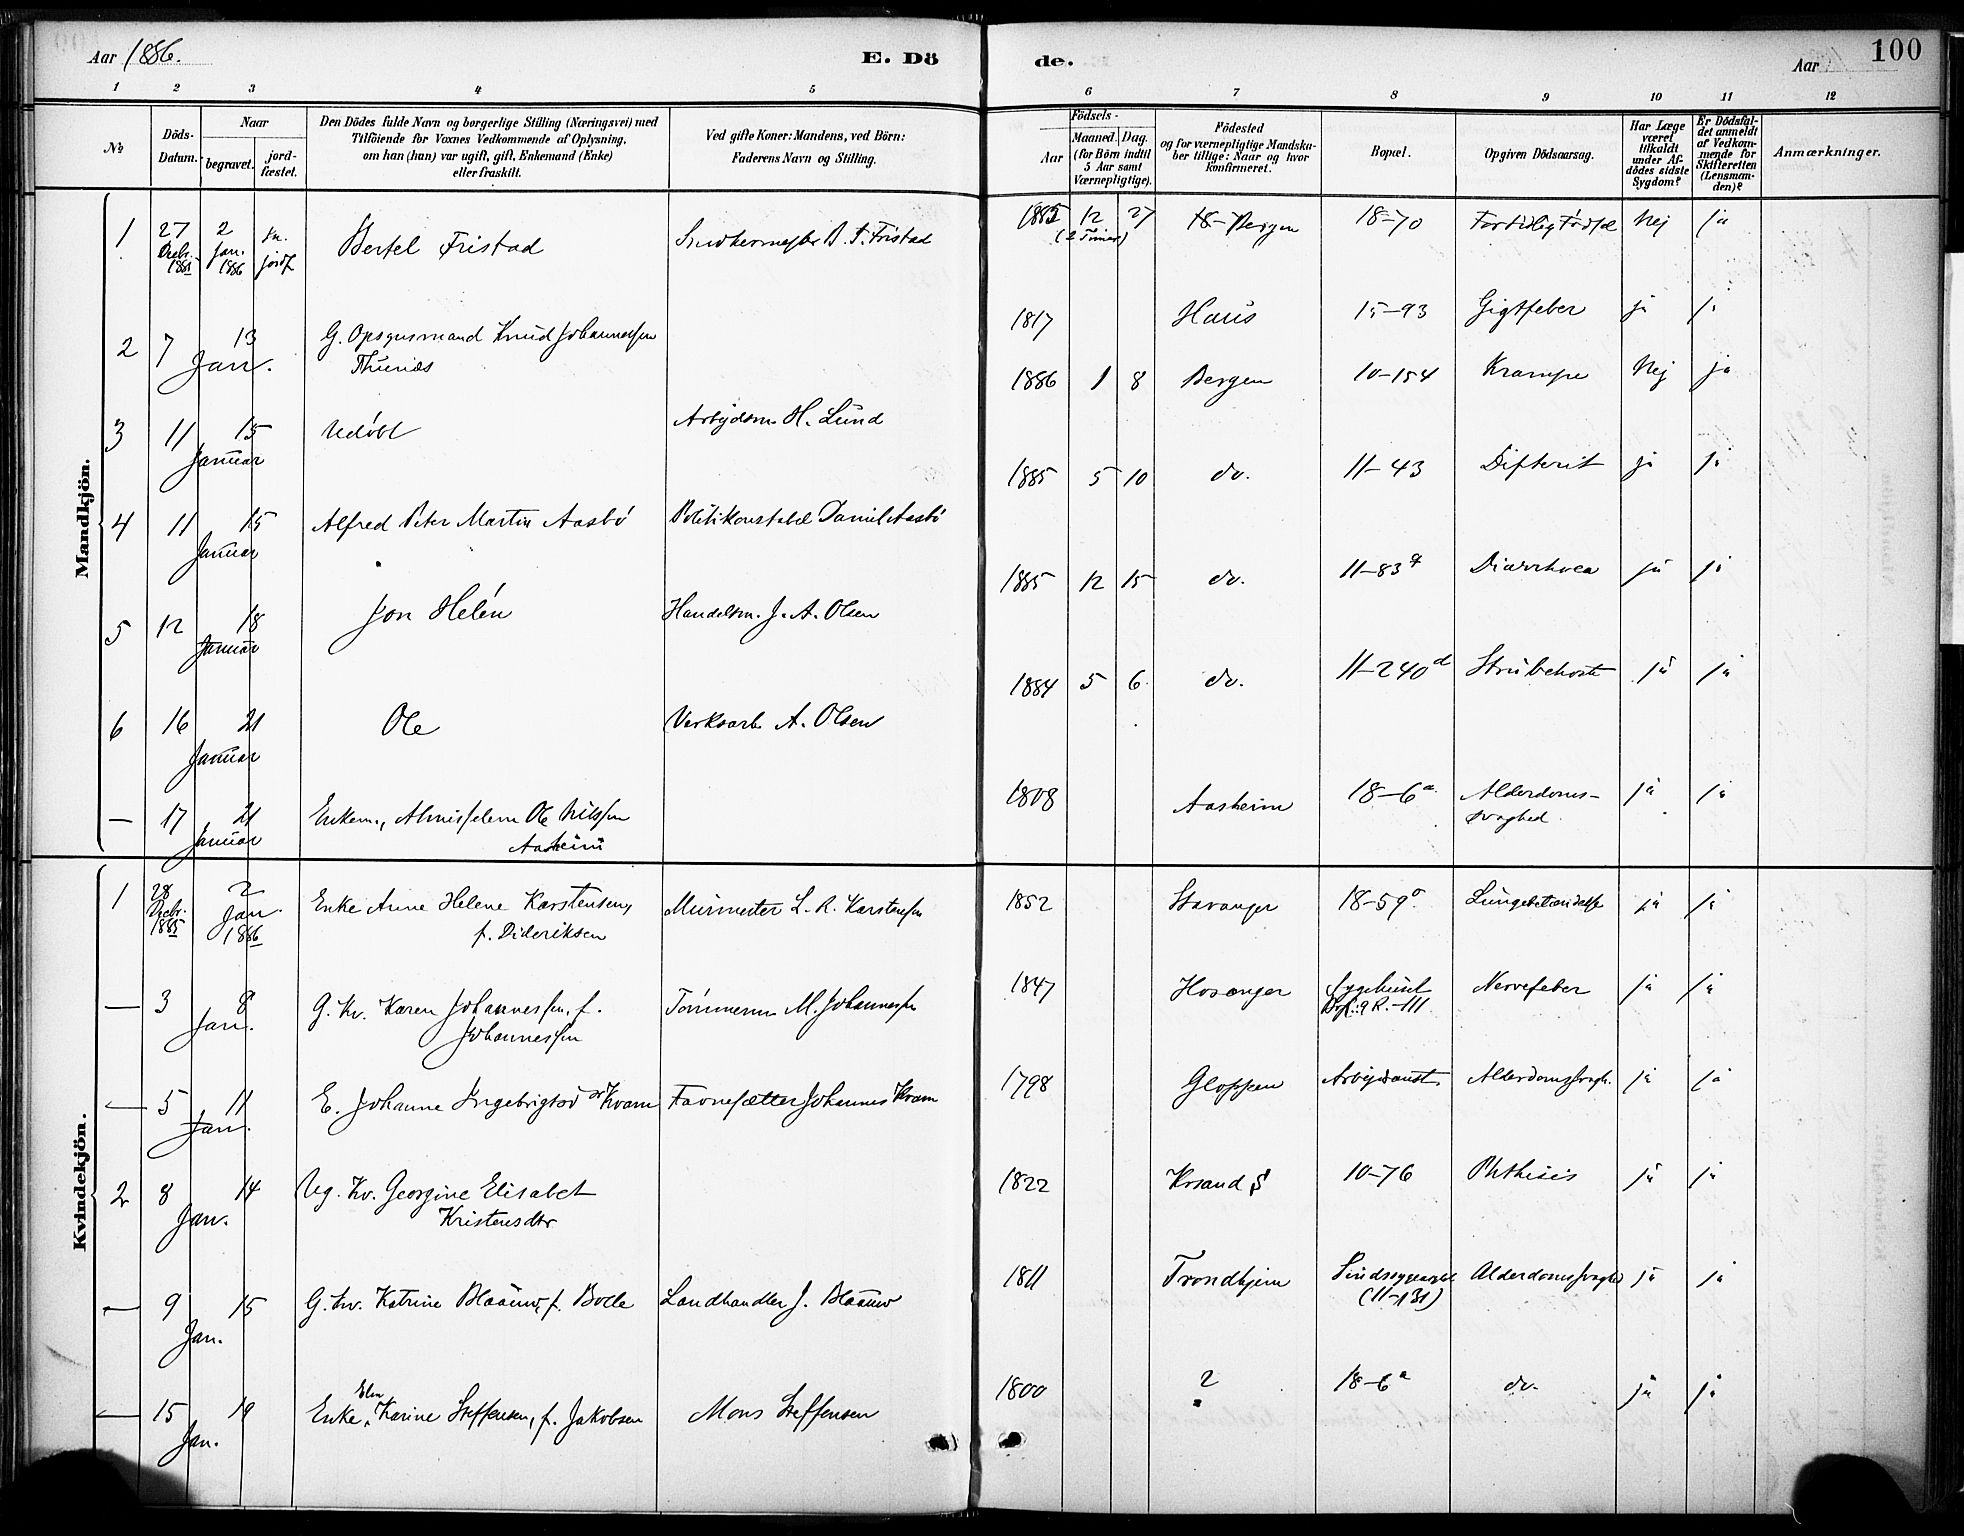 Aar 1886. E. Dö de. Aar 100
1 2 3 4 5 6 7 8 9 10 11 12
№
Döds-
Datum.
Naar
begravet.
jord-
fæstet.
Den Dödes fulde Navn og borgerlige Stilling (Næringsvei) med
Tilföiende for Voxnes Vedkommende af Oplysning,
om han (hun) var ugift, gift, Enkemand (Enke)
eller fraskilt.
Ved gifte Koner: Mandens, ved Börn:
Faderens Navn og Stilling.
Födsels-
Aar
Maaned. Dag.
(for Börn indtil
5 Aar samt
Værnepligtige).
Födested
og for værnepligtige Mandska-
ber tillige: Naar og hvor
konfirmeret.
Bopæl.
Opgiven Dödsaarsag.
Har Læge
været
tilkaldt
under Af-
dödes sidste
Sygdom?
Er Dödsfal-
det anmeldt
af Vedkom-
mende for
Skifteretten
(Lensman-
den)?
Anmærkninger.
Mandkjön.
1 27 Decbr. 1885 2 Jan. 1886 jordf. Bertel Fristad Fristad 1885 12 27 (2 Timer) Bergen 18-70 Fortidlig Fødsel Nej ja
2 7 13 Jan. G. Opsynsmand Knud Johannessen
Thunæs 1817 Haus 15-93 Gigtfeber ja ja
3 11 15 Januar Udøbt Arbejdsm. H. Lund 1886 1 8 Bergen 10-154 Krampe Nej ja
4 11 15 Januar Alfred Peter Martin Aasbö Politikonstabel Daniel Aasbö 1885 5 10 do. 11-43 Difterit ja ja
5 12 18 Januar Jon Helén Handelsm. J. A. Olsen 1885 12 15 do. 11-83 Diarrhoea ja ja
6 16 21 Januar Ole Verksarb. A. Olsen 1884 5 6 do. 11-240 d Strubehoste ja ja
— 17 21 Januar Enkem., Almisselem Ole Nilssen
Aasheim 1808 Aasheim 18-6 a Alderdoms-
svaghed ja ja
Kvindekjön.
1 28 Decbr. 1885 2 Jan. 1886 Enke Anne Helene Karstensen,
f. Dideriksen Murmester L. R. Karstensen 1852 Stavanger 18-59 Lungebetændelse ja ja
— 3 8 Jan. G. Kv. Karen Johannessen, f.
Johannessen Tömmerm. M. Johannessen 1847 Hosanger Sygehuset
9 R.-111 Nervefeber ja ja
— 5 11 Jan. E. Johanne Ingebrigtsd Kvam Favnesætter Johannes Kvam 1798 Gloppen Arbejdsanst. Alderdomssvagh. ja ja
2 8 14 Jan. Ug. Kv. Georgine Elisabet
Kristensdtr 1822 Krsand S 10-76 Phthisis ja ja
— 9 15 Jan. G. kv. Katrine Blaauw, f. Bolle Landhandler J. Blaauw 1811 Trondhjem Sindssygeasyl
(11-131) Alderdomssvaghed ja ja
— 15 19 Jan. Enke Elen Karine Steffensen, f. Jakobsen Mons Steffensen 1800 ? 18-6 a do. ja ja